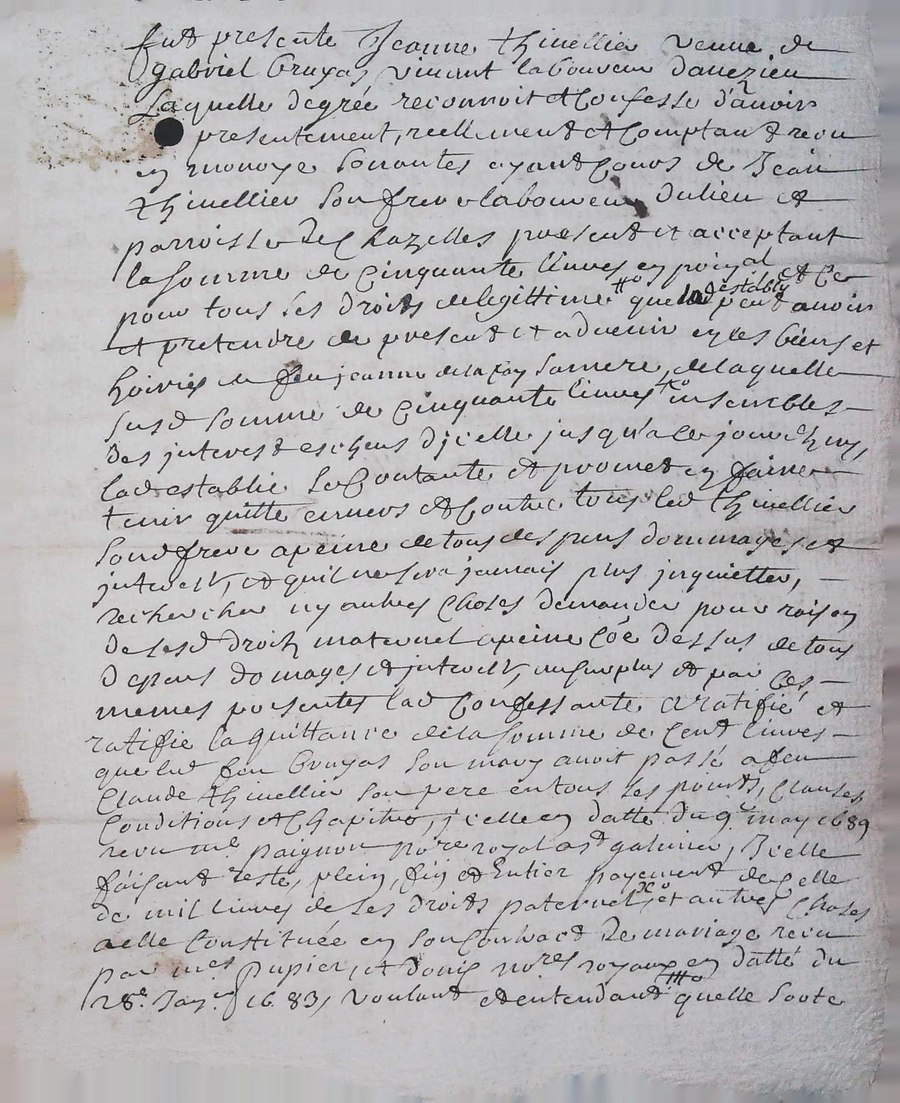 fut presente Jeanne thivellier veuve de
gabriel bruyas vivant laboureur d'aveizieu
Laquelle degrée reconnoit et Confesse d'avoir
presentement, reellement et Comptant receu
en monoye sonantes ayant Cours de Jean
thivellier son frere laboureur du lieu et
parroisse de Chazelles present et acceptant
la somme de cinquante livres en
pour tous ses droits de legittime que lad establie peut avoir
et pretendre de present et advenir en les biens et
hoiries de feu jeanne delafay sa mere, de laquelle
susd somme de cinquante livres ensembles
des interest eschus d'icelle jusqu'a ce jourd'huy,
lad establie se Contante et promet en faire
tenir quitte envers et Contre tous led thivellier
sond frere a peine de tous despens dommages et
interest, et quil ne sera jamais plus inquietter,
rechercher ny autres Choses demander pour raison
de sesd droitz maternel a peine Coe dessus de tous
despens domages et interest, au surplus et par Ces
memes presentes lad Confessante a ratifié et
ratifie la quittance de la somme de Cent livres
que led feu bruyas son mary avoit passé a feu
Claude thivellier son pere en tous ses points, Clauses
Conditions et Chapitres, icelle en datte du 9e may 1689
receu me paignon nore royal a st galmier, Icelle
faisant reste, plein, fin et Entier payement de Celle
de mil livres de ses droits paternels et autres Choses
a elle Constituée en son Contract de mariage receu
par mes pupier, et donis nores royaux en datté du
28e Janr 1683, voulant et entendant quelle sorte